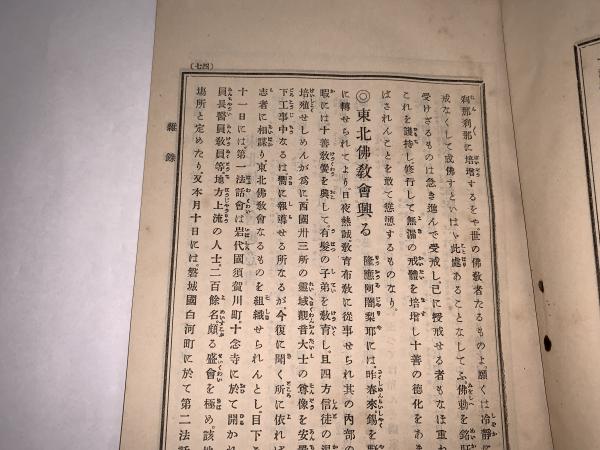 (七四)
刹那刹那に培增するをや世の佛敎者たるものよ願くは冷靜に
戒なくして成佛すといはゞ此處あることなしてふ佛勅を銘肝
受けざるものは急き進んで受戒し已に授戒せる者もなほ重ね
これを護持し修行して無漏の戒體を培增し十善の德化をあ
ばされんことを敢て慫慂するものなり。
◎東北佛敎會興る
隆應阿闍梨耶には昨春來錫を野
に轉せられてより日夜熱誠敎育布敎に從事せられ其の內部の
暇には十善敎黌を興して有髮の子弟を敎育し且四方信徒の
培殖せしめんが爲に西國卅三所の靈域觀音大士の尊像を安
下工事中なるは嚮に報導せる所なるが今復に聞く所に依れば
志者に相謀り東北佛敎會なるものを組織せられんとし目下
十一日には第一法話會は岩代國須賀川町十念寺に於て開かれ
員長警員敎員等地方上流の人士二百餘名頗る盛會を極め該
塲所と定めたり又本月十日には磐城國白河町に於て第二法話
雜錄